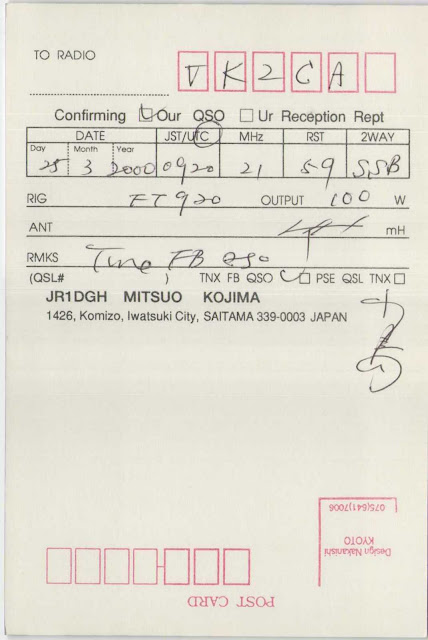 TO RADIO
V K 2 C A
Confirming Our QSO Ur Reception Rept
DATE JST/UTC MHz RST 2WAY
Day Month Year
25 3 2000 0920 21 59 SSB
RIG FT 920 OUTPUT 100 W
ANT mH
RMKS FB QSO
(QSL# ) TNX FB QSO PSE QSL TNX
JR1DGH MITSUO KOJIMA
1426, Komizo, Iwatsuki City, SAITAMA 339-0003 JAPAN
075(641)7006
KYOTO
Design Nakanishi
POST CARD